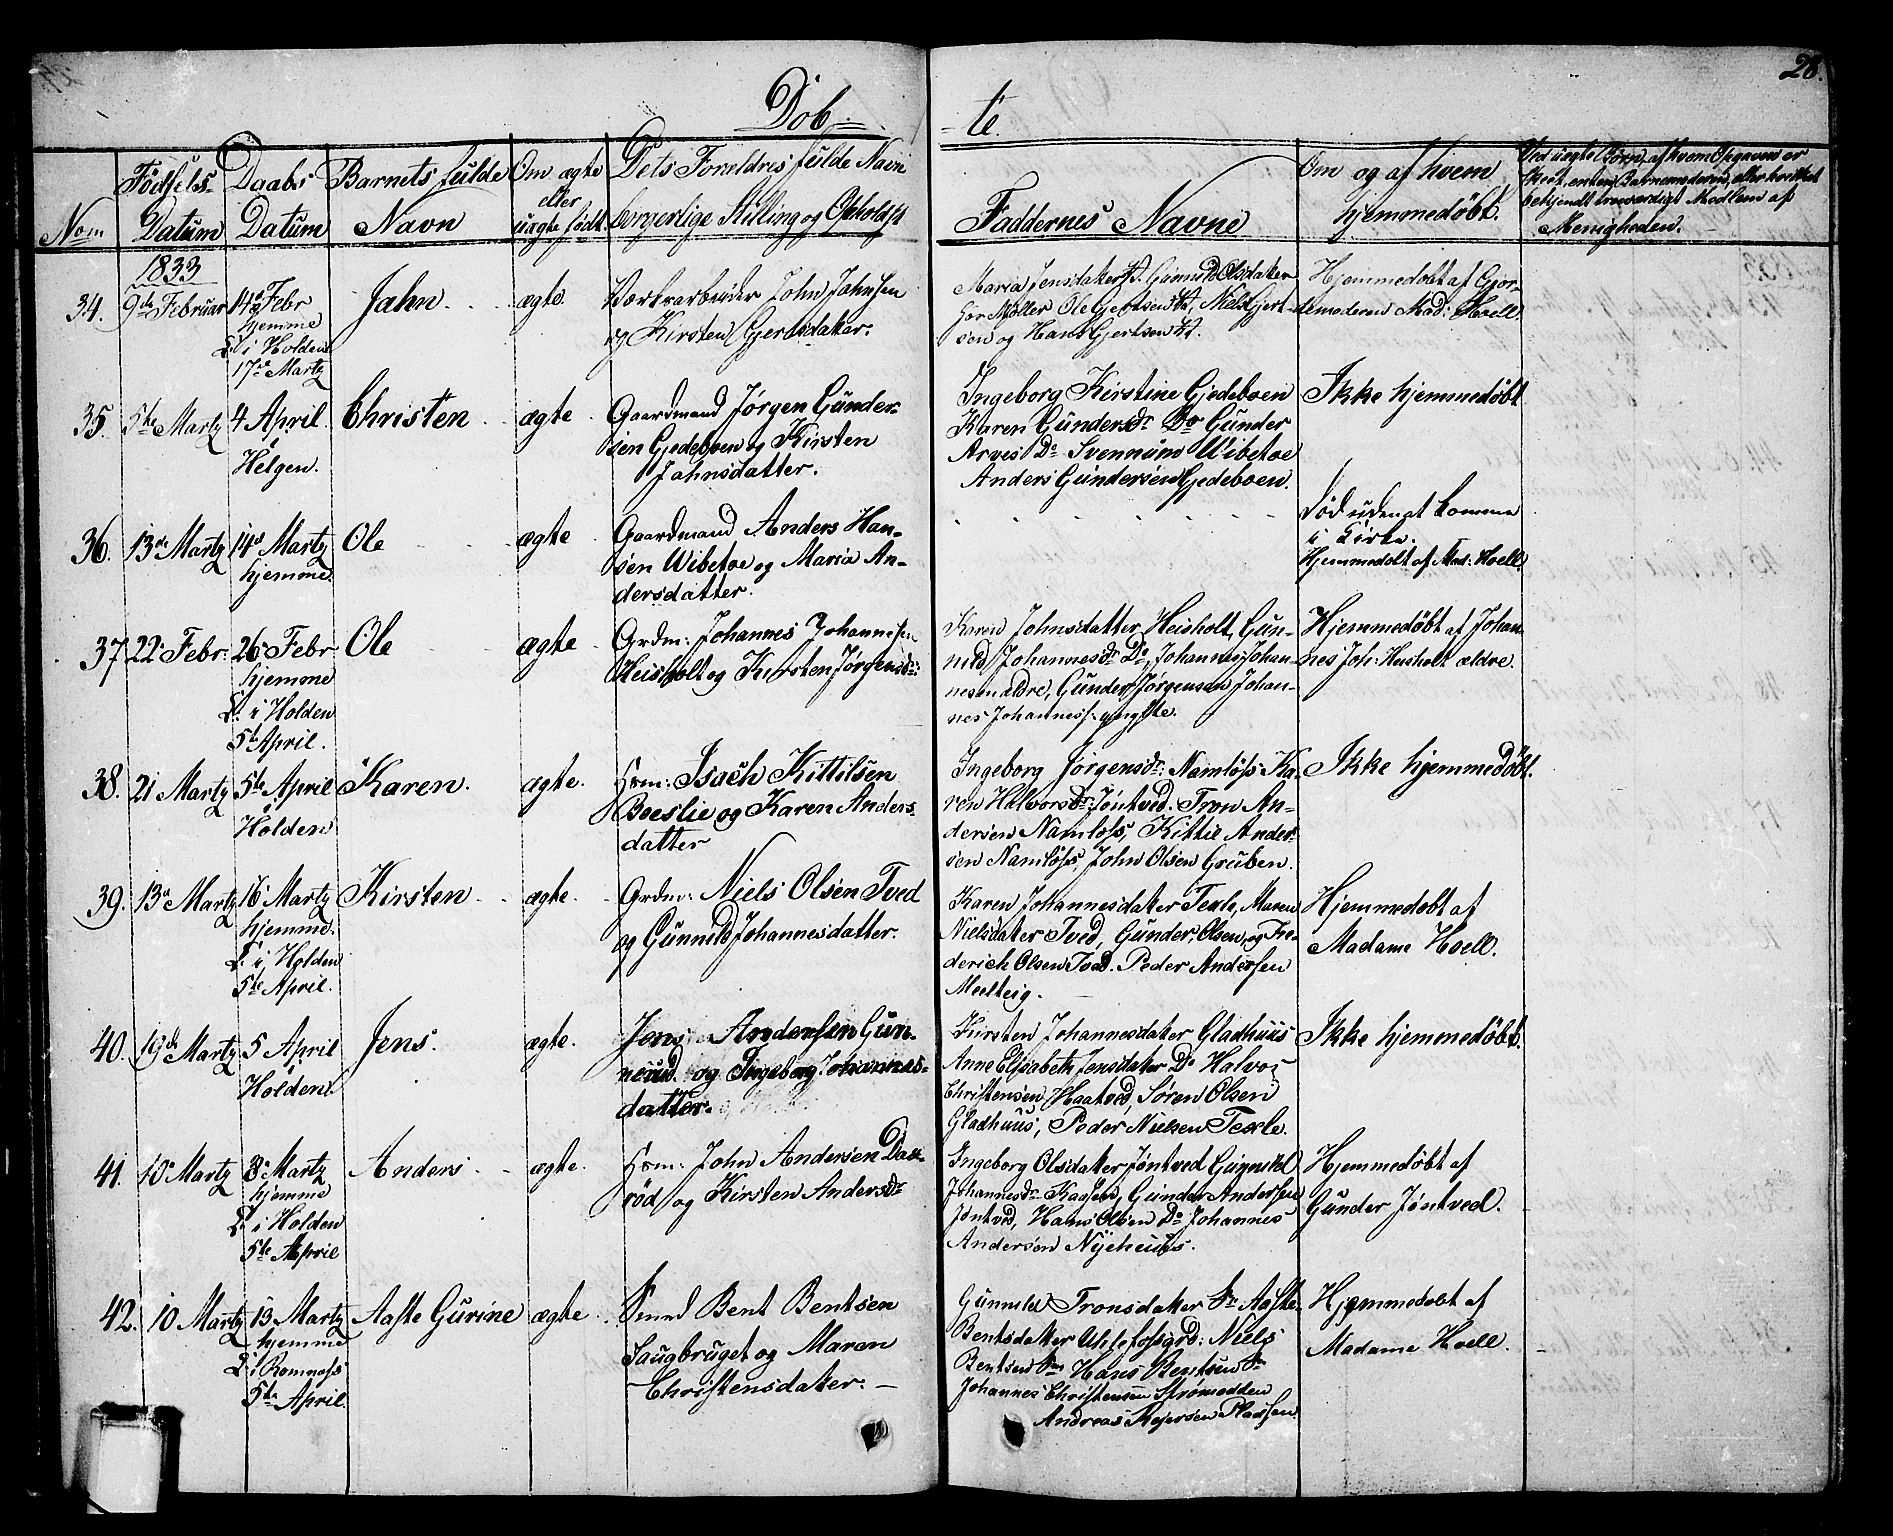 28.
Döb te.
Nom
Fødsels Datum
Daabs Datum
Barnets fulde Navn
Om ægte eller uægte født
Dets Forældres fulde Navn borgerlige Stilling og Opholdst
Faddernes Navne
Om og af hvem hjemmedøbt.
Ved uægte Børn, af hvem Opgaven er
skeet, enten Barnemoderen, eller hvilket
bekjendt troeværdigt Medlem af
Menigheden.
1833
34. 9de Februar
14d Febr
hjemme
D. i Holden
17de Martz
Jahn
ægte.
Værkarbeider John Johnsen
og Kirsten Gjertsdater.
Maria Jensdater
Møller Ole Gjertsen
sen og Hans Gjertsen
Hjemmedøbt af Gjor-
demoderen Mad: Hoell.
35. 5te Martz
4 April
Helgen.
Christen
ægte
Gaardmand Jørgen Gunder-
sen Gjedeboen og Kirsten
Jahnsdatter.
Ingeborg Kirstine Gjedeboen
Karen Gundersdr Do Gunder
Arves Do Svennum Wibetoe
Anders Gundersen Gjedeboen.
Ikke hjemmedøbt
36. 13de Martz
14d Martz
hjemme.
Ole
ægte
Gaardmand Anders Han-
sen Wibetoe og Maria An-
dersdatter.
Død uden at komme
i Kirke.
Hjemmedøbt af Mad: Hoell.
37. 22 Febr:
26 Febr
hjemme
D. i Holden
5te April.
Ole
ægte
Grdm: Johannes Johannesen
Heisholt og Kirsten Jørgensdr:
Karen Johnsdatter Heisholt, Gun-
nild Johannesdr Do, Johannes Johan-
nesen ældre, Gunder Jørgensen, Johan-
nes Johanness: yngste.
Hjemmedøbt af Johan-
nes Joh: Heisholt ældre.
38. 21 Martz
5te April
Holden
Karen.
ægte.
Hsm: Isach Kittilsen
Boeslie og Karen Anders-
datter
Ingeborg Jørgensdr: Namløss Ka-
ren Halvorsdr Jøntved. Tron An-
dersen Namløss, Kittil Ander-
sen Namløss, John Olsen Gruben.
Ikke hjemmedøbt.
39. 13d Martz
16 Martz
hjemme.
D. i Holden
5te April.
Kirsten
ægte.
Grdm: Niels Olsen Tved
og Gunnild Johannesdatter.
Karen Johannesdater Texle, Maren
Nielsdater Tved, Gunder Olsen, og Fre-
derich Olsen Tved. Peder Andersen
Meelteig.
Hjemmedøbt af
Madame Hoell.
40. 19de Martz
5 April
Holden.
Jens.
ægte.
Jens Andersen Gun-
neud og Ingeborg Johannes-
datter.
Kirsten Johannesdater Gladhuus
Anne Elisabeth Jensdater Do Halvor
Christensen Haatved, Søren Olsen
Gladhuus, Peder Nielsen Texle.
Ikke hjemmedøbt.
41. 10 Martz
3 Martz
hjemme
D. i Holden
5te April
Anders
ægte.
Hsm: John Andersen Dae-
rød og Kirsten Andersdr
Ingeborg Olsdater Jøntved Gunnild
Johannesdr Kaasen, Gunder Andersen
Jøntved, Hans Olsen Do Johannes
Andersen Nyehuus.
Hjemmedøbt af
Gunder Jøntved.
42. 10 Martz
13 Martz
hjemme
D. i Romnæss
5te April
Aaste Gurine
ægte
Smed Bent Bentsen
Saugbruget og Maren
Christensdater.
Gunnild Tronsdater Aaste
Bentsdater Ulefossgrd: Niels
Bentsen Hans Bentsen
Johannes Christensen Strømodden
Andreas Mejersen Pladsen
Hjemmedøbt af
Madame Hoell.